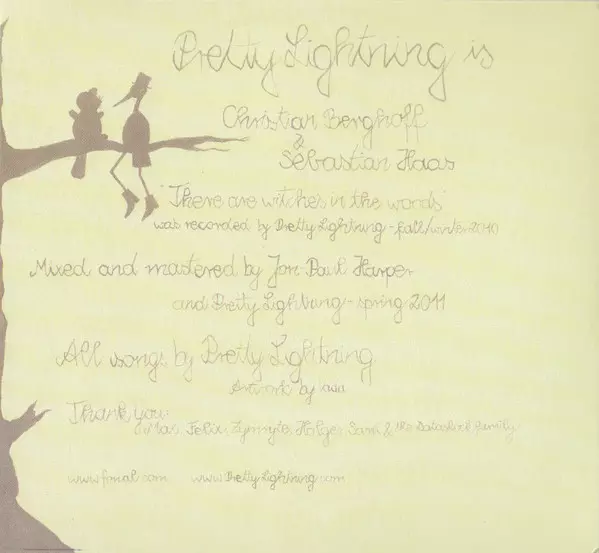 Pretty Lightning is
Christian Berghoff
&
Sebastian Haas
"There are witches in the woods"
was recorded by Pretty Lightning - fall/winter 2010
Mixed and mastered by Jon-Paul Harper
and Pretty Lightning - spring 2011
All songs by Pretty Lightning
Artwork by
Thank you:
Felix, Holger, & the Datashock family
www.fonal.com www.PrettyLightning.com